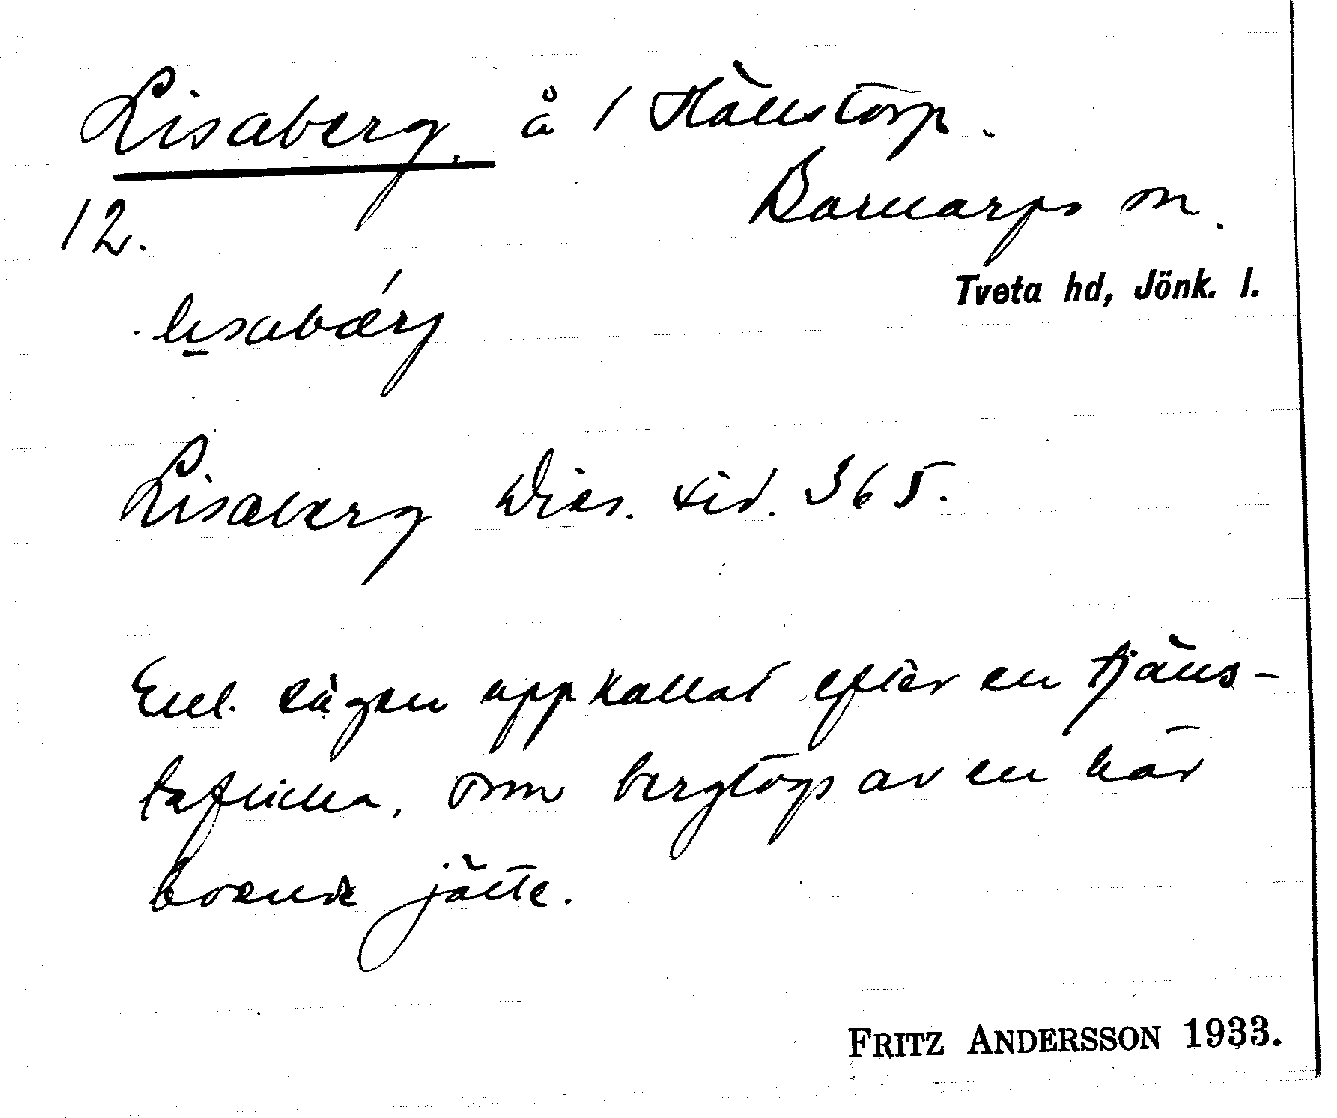 Lisaberg. å 1 Hällstorp.
Barnarps sn.
12.
Tveta hd, Jönk. l.
lisabærj
Lisaberg Wies. sid. 365.
Enl. sägen uppkallat efter en tjäns-
teflicka, som bergtogs av en här
boende jätte.
FRITZ ANDERSSON 1933.